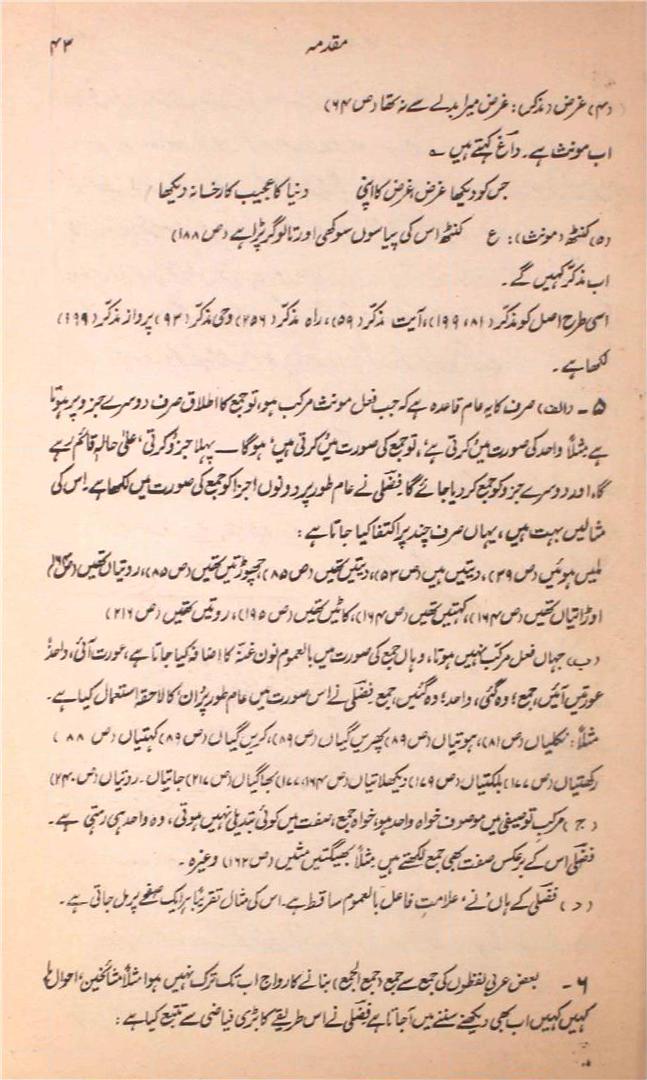 مقدمہ ۴۳
(۴) غرض (مذکر): غرض میرا بدلے سے نہ تھا (ص ۶۴)
اب مونث ہے۔ داغؔ کہتے ہیں ؎
جس کو دیکھا غرض، غرض کا اپنی دنیا کا عجیب کارخانہ دیکھا
(۵) کنٹھ (مونث): ع کنٹھ اس کی پیاسوں سوکھی اور تالو گر پڑا ہے (ص ۱۸۸)
اب مذکّر کہیں گے۔
اسی طرح اصل کو مذکّر (۸۱، ۱۹۹)، آیت مذکّر (۵۹)، راہ مذکّر (۲۵۶) وحی مذکّر: (۹۳) پرواز مذکّر (۱۹۹)
لکھا ہے۔
۵ ۔ (الف) صرف کا یہ عام قاعدہ ہے کہ جب فعل مونث مرکب ہو، تو جمع کا اطلاق صرف دوسرے جزو پر ہوتا
ہے مثلاً واحد کی صورت میں ’کرتی ہے‘، تو جمع کی صورت میں ’کرتی ہیں‘ ہوگا — پہلا جزو ’کرتی‘ علیٰ حالہٖ قائم رہے
گا، اور دوسرے جزو کو جمع کر دیا جائے گا۔ فضلؔی نے عام طور پر دونوں اجزا کو جمع کی صورت میں لکھا ہے۔ اس کی
مثالیں بہت ہیں، یہاں صرف چند پر اکتفا کیا جاتا ہے:
ملیں ہوئیں (ص ۳۹)، دیتیں ہیں (ص ۵۳)، دیتیں تھیں (ص ۸۵)، چھوڑتیں تھیں (ص ۸۵)، روتیاں تھیں
اوڑاتیاں تھیں (ص ۱۶۴)، کہتیں تھیں (ص ۱۶۴)، کاٹیں تھیں (ص ۱۹۵)، روتیں تھیں (ص ۲۱۶)
(ب) جہاں فعل مرکب نہیں ہوتا، وہاں جمع کی صورت میں بالعموم نون غنّہ کا اضافہ کیا جاتا ہے، عورت آئی، واحد؛
عورتیں آئیں، جمع؛ وہ گئی، واحد؛ وہ گئیں، جمع۔ فضلؔی نے اس صورت میں عام طور پر ’ان‘ کا لاحقہ استعمال کیا ہے۔
مثلاً: نکلیاں (ص ۸۱)، ہوتیاں (ص ۸۹) پھریں گیاں (ص ۸۹)، کریں گیاں (ص ۸۹) کہتیاں (ص ۸۸)
رکھتیاں (ص ۱۷۷) بلکتیاں (ص ۱۷۹) دیکھلاتیاں (ص ۱۶۴، ۱۷۷) بجاگیاں (ص ۲۱۷) جاتیاں۔ روتیاں (ص ۲۴۰)
(ج) مرکب توصیفی میں موصوف خواہ واحد ہو، خواہ جمع، صفت میں کوئی تبدیلی نہیں ہوتی، وہ واحد ہی رہتی ہے۔
فضلؔی اس کے برعکس صفت بھی جمع لکھتے ہیں مثلاً بھیگتیں مشیں (ص ۱۶۲) وغیرہ۔
(د) فضلؔی کے ہاں ’نے‘ علامتِ فاعل بالعموم ساقط ہے۔ اس کی مثال تقریباً ہر ایک صفحے پر مل جاتی ہے۔
۶ ۔ بعض عربی لفظوں کی جمع سے جمع (جمع الجمع) بنانے کا رواج اب تک ترک نہیں ہوا مثلاً مشائخین،
کہیں کہیں اب بھی دیکھنے سننے میں آ جاتا ہے فضلؔی نے اس طریقے کا بڑی فیاضی سے تتبع کیا ہے: